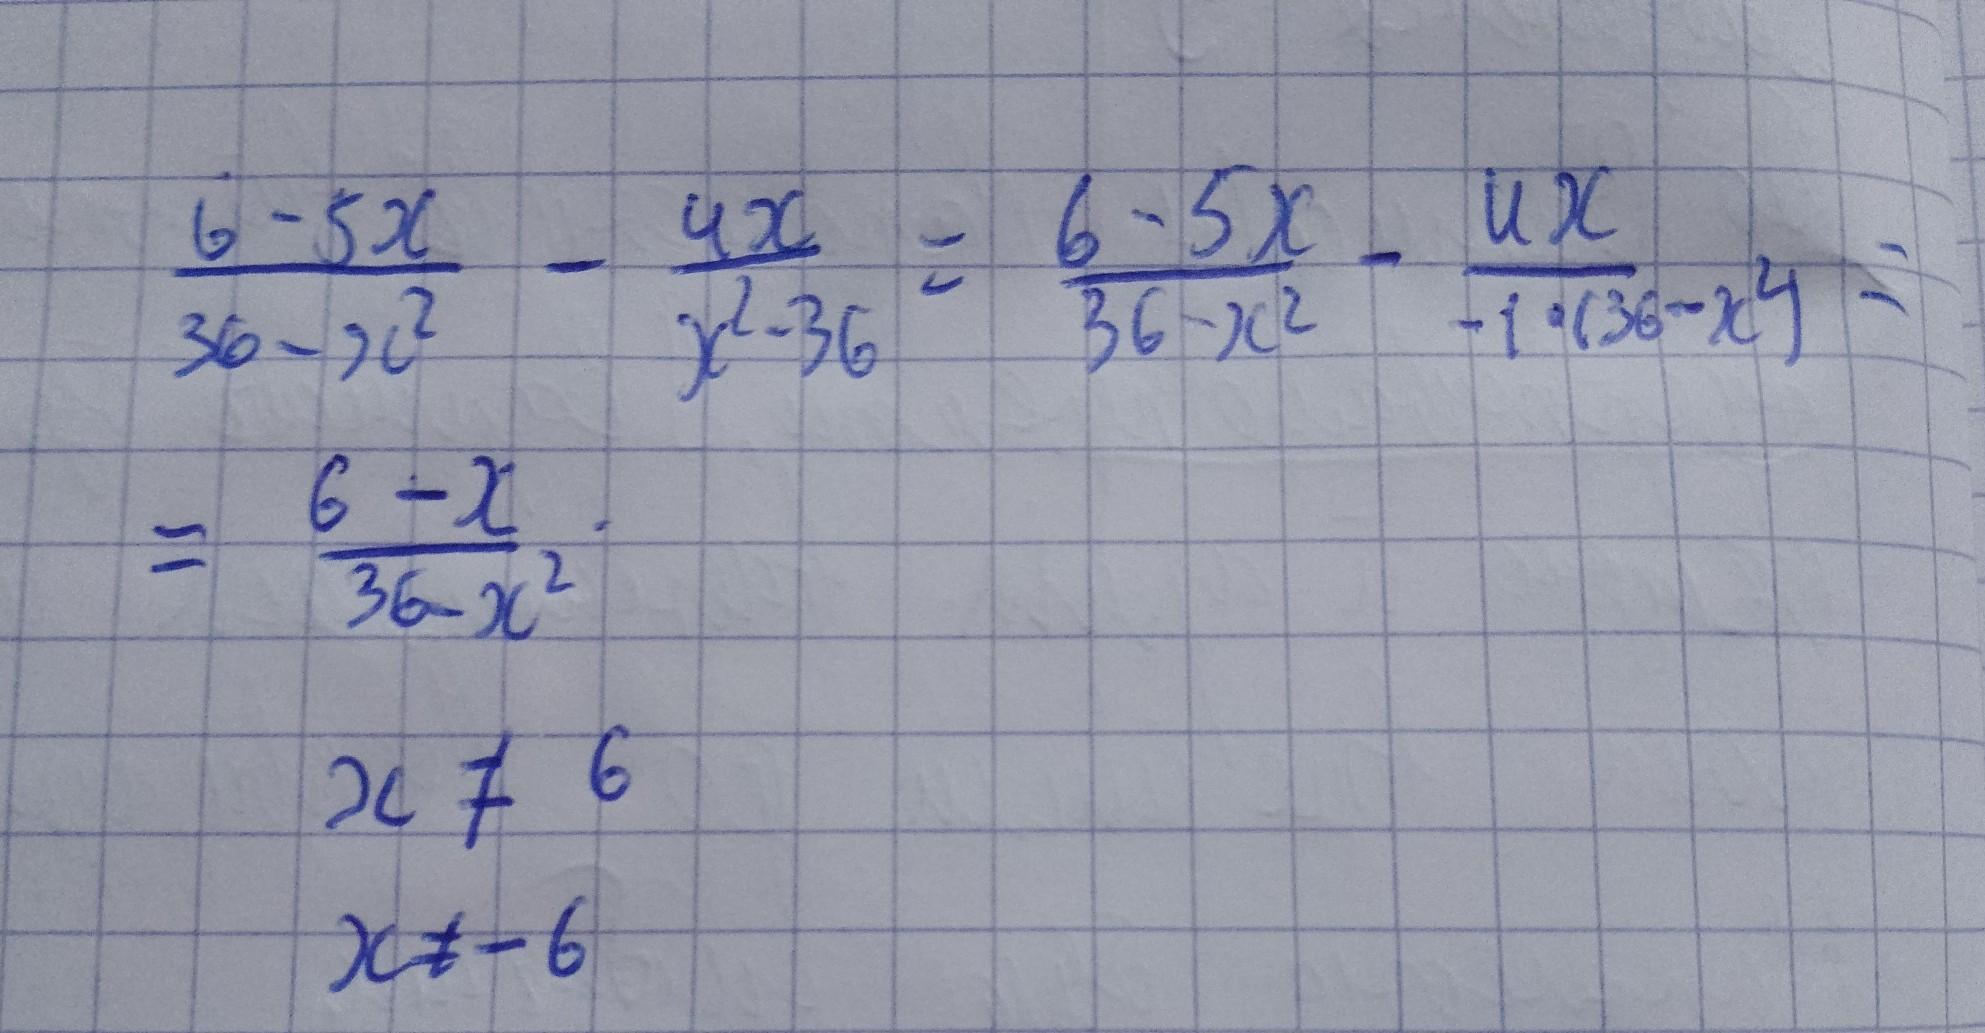 (6 - 5x)/(36 - x²) - 4x/(x² - 36) = (6 - 5x)/(36 - x²) - 4x/(-1·(36 - x²)) =
= (6 - x)/(36 - x²)
x ≠ 6
x ≠ -6